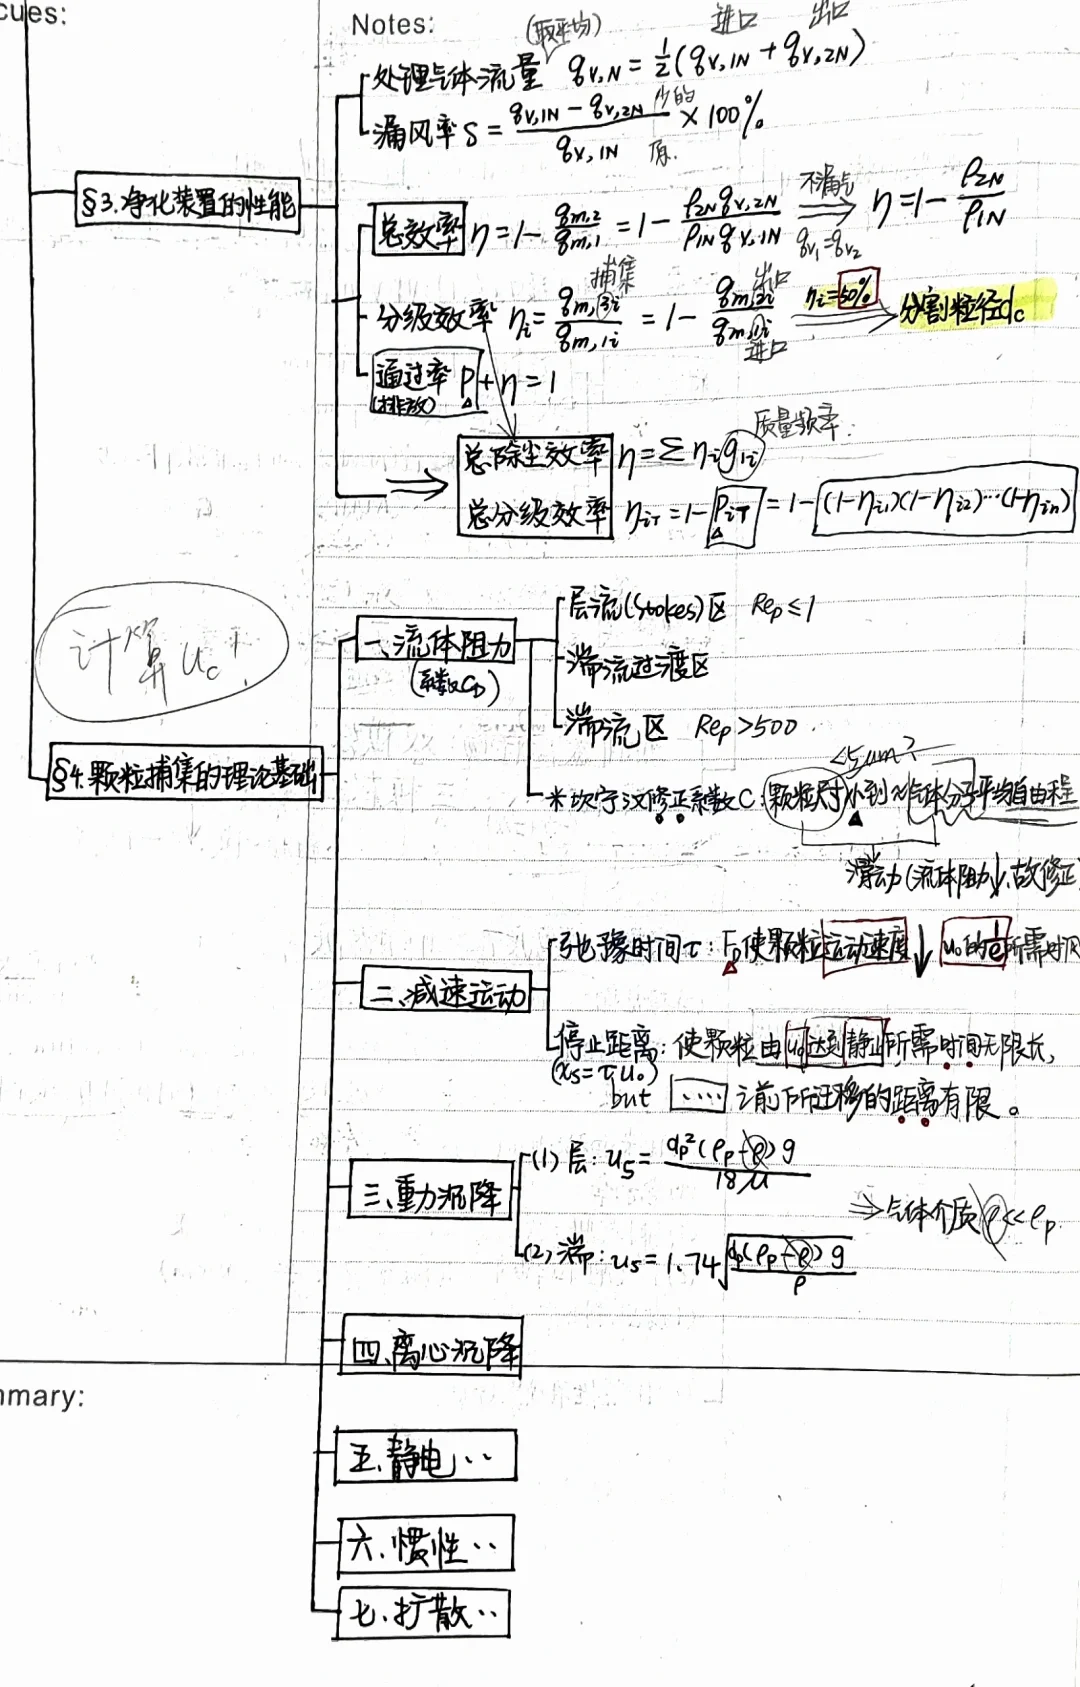 cues:
Notes:
(取平均)
进口
出口
处理气体流量 qv,N = 1/2 (qv,1N + qv,2N)
漏风率 S = (qv,1N − qv,2N) / qv,1N × 100%
少的
原.
§3.净化装置的性能
总效率 η = 1 − qm,2/qm,1 = 1 − ρ2N qv,2N / ρ1N qv,1N
不漏气
qv1 = qv2
η = 1 − ρ2N/ρ1N
捕集
出口
分级效率 ηi = qm,3i/qm,1i = 1 − qm,2i/qm,1i
进口
ηi=50%
分割粒径dc
通过率 P + η = 1
(排放)
质量频率.
总除尘效率 η = Σ ηi g1i
总分级效率 ηiT = 1 − PiT = 1 − (1−ηi1)(1−ηi2)…(1−ηin)
计算 uc
§4.颗粒捕集的理论基础
一、流体阻力
(系数CD)
层流(Stokes)区 Rep ≤ 1
湍流过渡区
湍流区 Rep > 500
<5um?
*坎宁汉修正系数C: 颗粒尺寸小到≈气体分子平均自由程
滑动(流体阻力↓,故修正
二、减速运动
弛豫时间τ: FD使颗粒运动速度↓ u0的1/e所需时间
停止距离: 使颗粒由u0达到静止所需时间无限长,
(xs = τu0)
but …… 之前所迁移的距离有限。
三、重力沉降
(1) 层: us = dp²(ρp−ρ)g / 18μ
⇒气体介质 ρ<<ρp
(2) 湍: us = 1.74 √(dp(ρp−ρ)g / ρ)
四、离心沉降
mmary:
五、静电‥
六、惯性‥
七、扩散‥